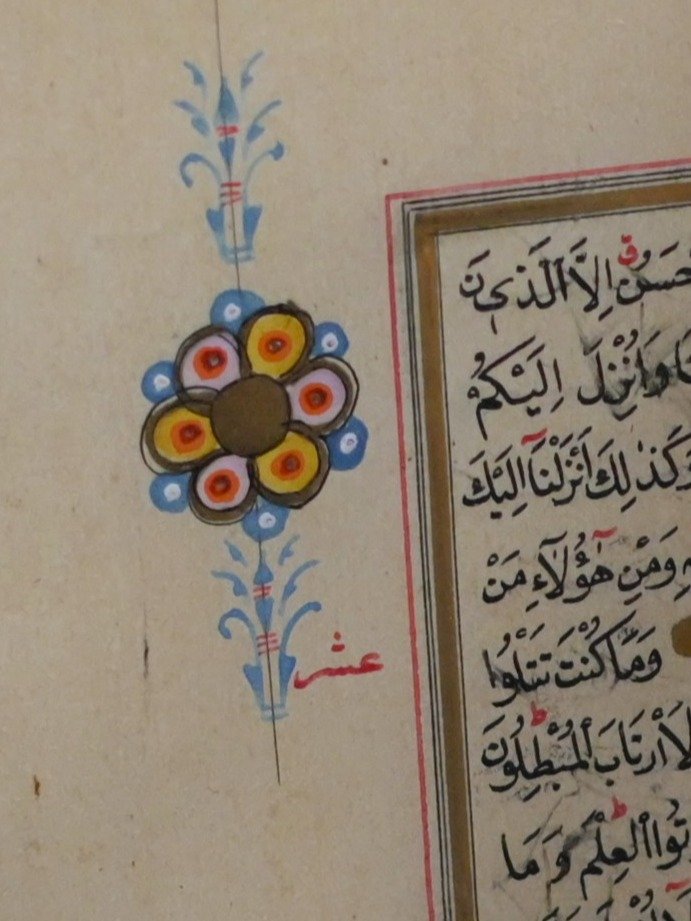 حْسَنُ اِلَّا الَّذٖينَ
نَا وَاُنْزِلَ اِلَيْكُمْ
وَكَذٰلِكَ اَنْزَلْنَٓا اِلَيْكَ
هٖ وَمِنْ هٰٓؤُلَٓاءِ مَنْ
وَمَا كُنْتَ تَتْلُوا
لَارْتَابَ الْمُبْطِلُونَ
تُوا الْعِلْمَ وَمَا
عشر